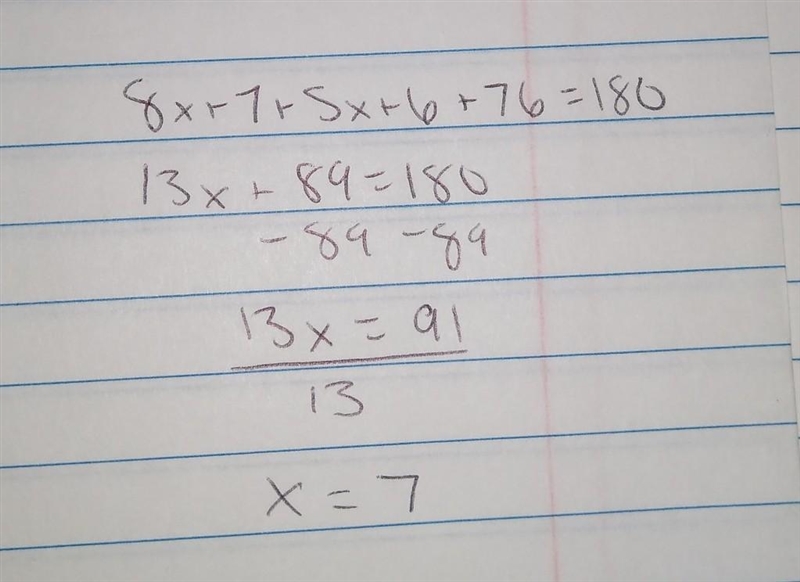 8x+7+5x+6+76=180
13x+89=180
-89 -89
13x = 91
13
x = 7